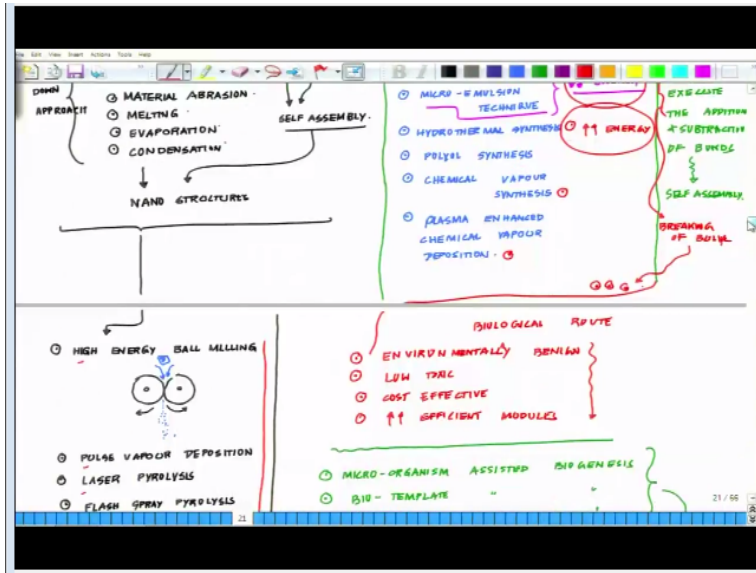 File Edit View Insert Actions Tools Help
DOWN
APPROACH
MATERIAL ABRASION.
MELTING.
EVAPORATION.
CONDENSATION.
SELF ASSEMBLY.
NANO STRUCTURES
MICRO-EMULSION
TECHNIQUE
HYDROTHERMAL SYNTHESIS
↑↑ ENERGY
POLYOL SYNTHESIS
CHEMICAL VAPOUR
SYNTHESIS
PLASMA ENHANCED
CHEMICAL VAPOUR
DEPOSITION.
EXECUTE
THE ADDITION
& SUBTRACTION
OF BONDS
SELF ASSEMBLY.
BREAKING
OF BONDS
HIGH ENERGY BALL MILLING
PULSE VAPOUR DEPOSITION
LASER PYROLYSIS
FLASH SPRAY PYROLYSIS
BIOLOGICAL ROUTE
ENVIRONMENTALLY BENIGN
LOW TOXIC
COST EFFECTIVE
↑↑ EFFICIENT MODULES
MICRO-ORGANISM ASSISTED BIOGENESIS
BIO-TEMPLATE " "
21 / 66
21